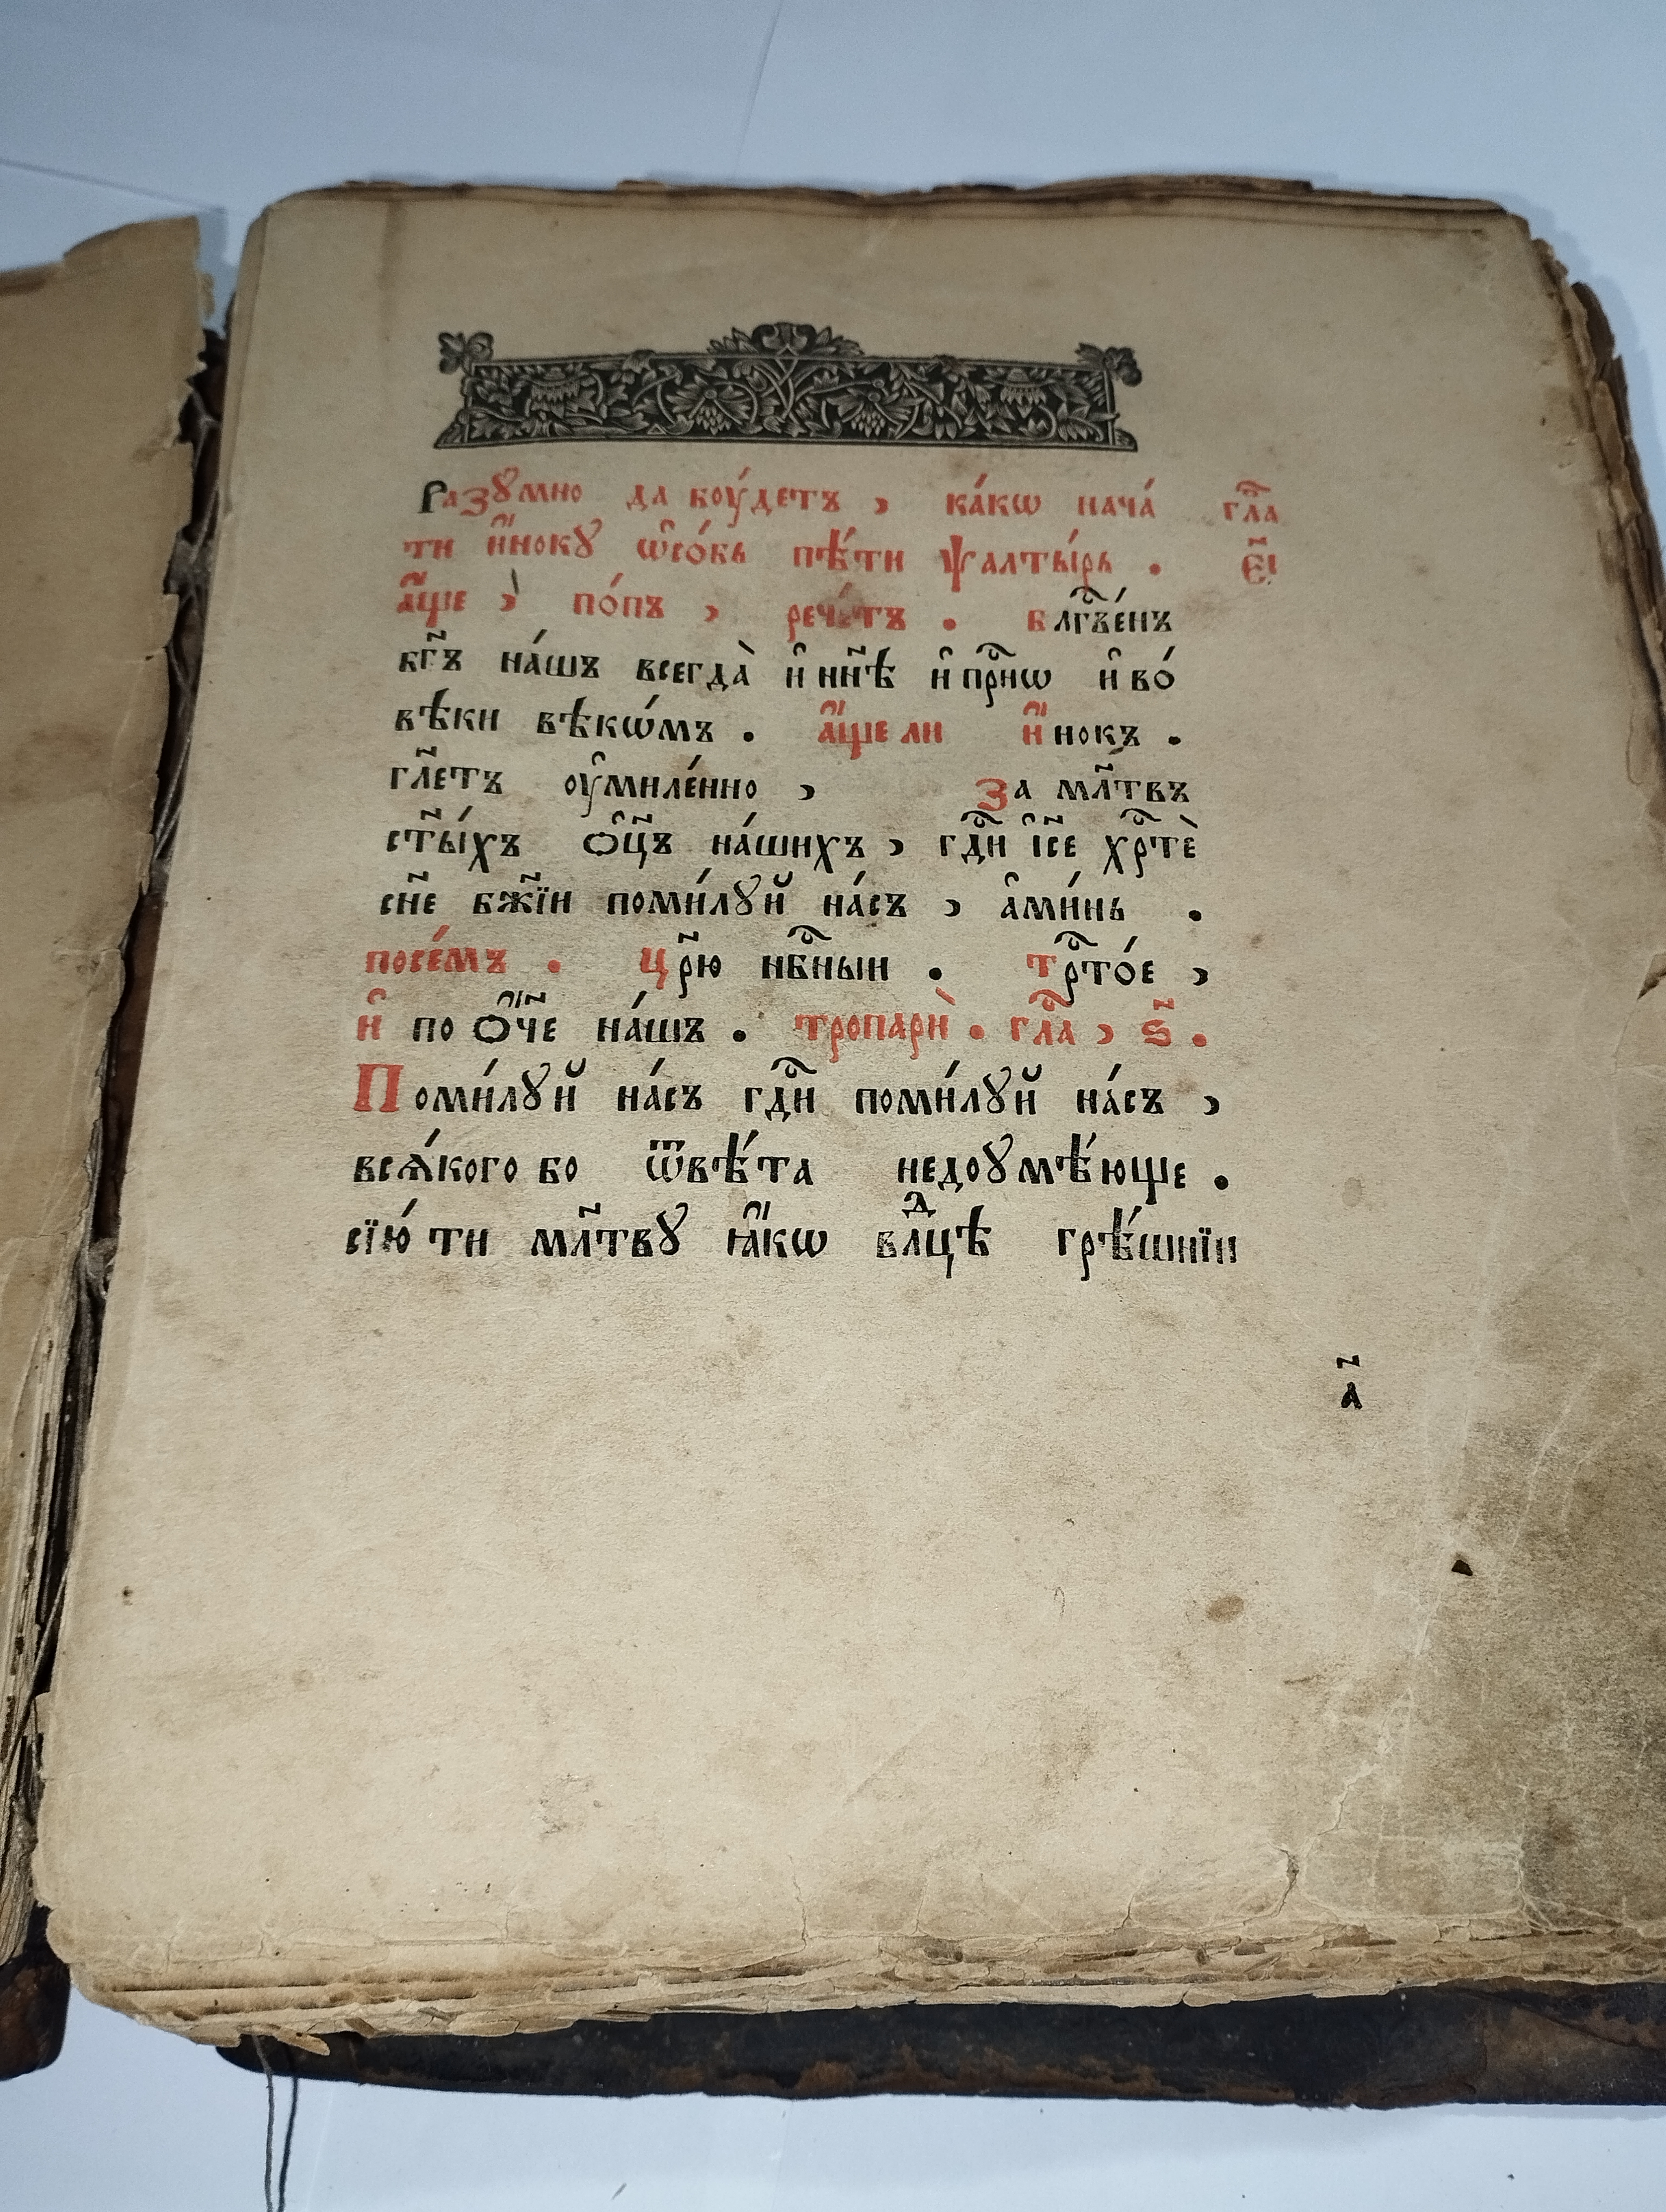 Разꙋмно да боу́детъ , ка́кѡ нача́ гл҇а
ти и҆́нокꙋ ѡ҆со́бь пѣ́ти ѱалты́рь . є҃і
а҆́ще , по́пъ , рече́тъ . блг҇ве́нъ
бг҃ъ на́шъ всегда̀ и҆ нн҃ѣ и҆ пр҇нѡ и҆ во́
вѣки вѣкѡ́мъ . а҆́ще ли и҆́нокъ .
гл҃етъ оу҆миле́нно , За мл҃твъ
ст҃ы́хъ ѻ҆ц҃ъ на́шихъ , гд҇и і҆с҃е хр҇тѐ
сн҃е бж҃їи поми́лꙋй на́съ , а҆ми́нь .
посе́мъ . Цр҃ю нб҇ныи . Тр҇то́е ,
и҆ по ѻ҆́ч҃е на́шъ . тропарѝ . гл҇а , ѕ҃ .
Поми́лꙋй на́съ гд҇и поми́лꙋй на́съ ,
всѧ́кого бо ѿвѣ́та недоꙋмѣ́юще .
сїю́ ти мл҃твꙋ ꙗ҆́кѡ влⷣцѣ грѣ́шнїи
а҃